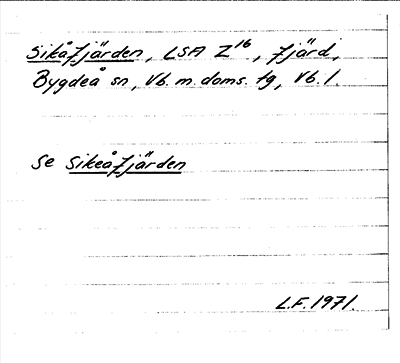 Sikåfjärden, LSA Z16, fjärd,
Bygdeå sn, Vb. m. doms. tg, Vb. l.
Se Sikeåfjärden
L.F. 1971.